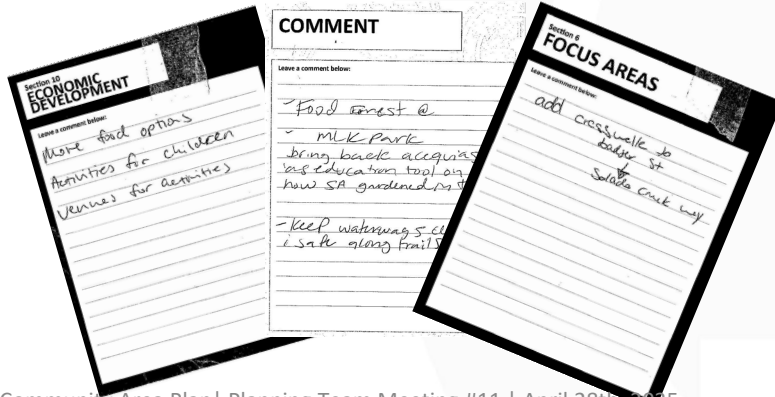 Section 10
ECONOMIC
DEVELOPMENT
Leave a comment below:
More food options
Activities for children
Venues for activities
COMMENT
Leave a comment below:
- Food forest @
- MLK Park
bring back acequias
as education tool on
how SA gardened in
- Keep waterways
i safe along trails
Section 6
FOCUS AREAS
Leave a comment below:
add crosswalk to
badger st
Salado creek way
Community Area Plan | Planning Team Meeting #11 | April 28th, 2025